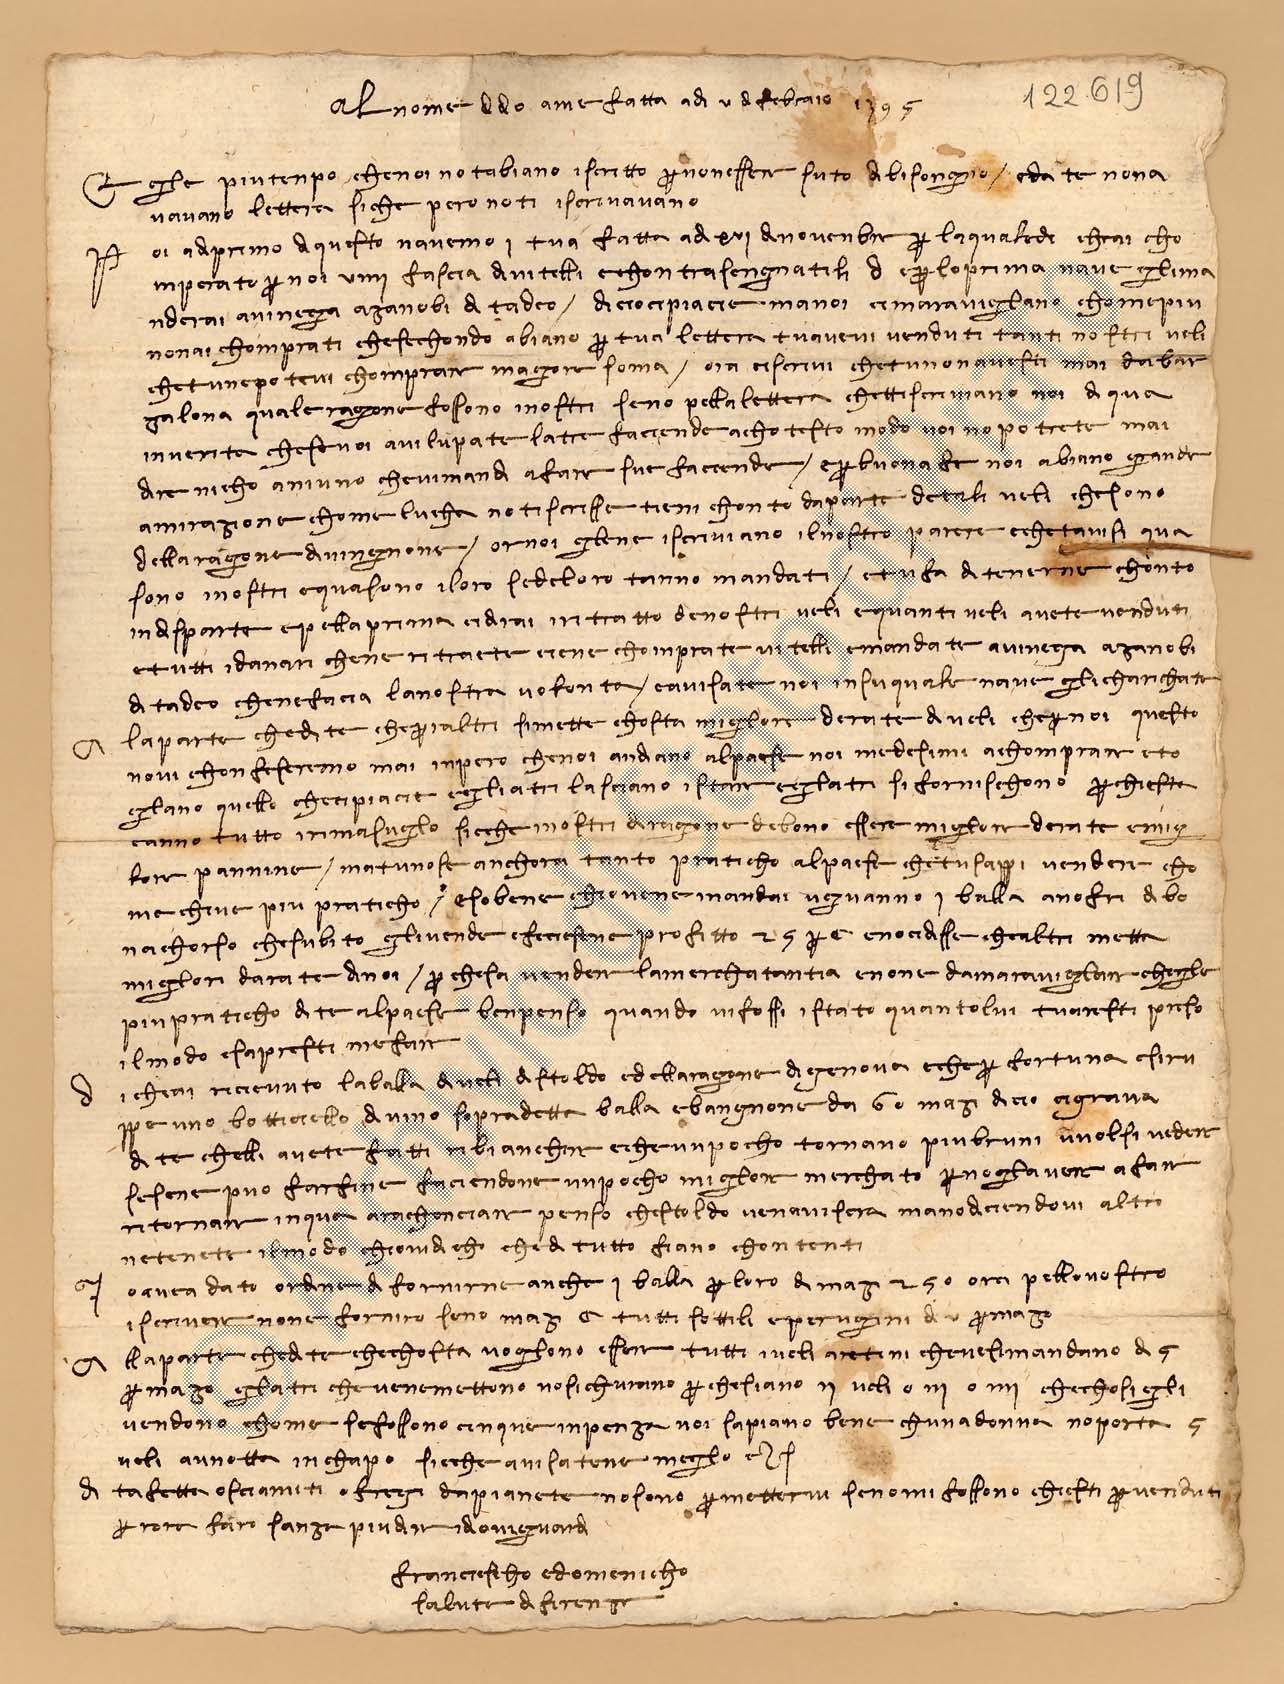 Al nome d Do ame fatta adi v d febraio 1395
122.619
E gle piu tenpo che noi no tabiano iscritto p nonesser suto di bisongnio / e da te nona
vavano lettera siche pero no ti iscrivavano
P oi adi primo di questo navemo j tua fatta adi xvi di novenbre p la quale di chai cho
nperato p noi viiij fascia di vitelli e chontrasengnatili d e p lo prima nave gli ma
nderai a vinegia a zanobi di tadeo / di cio ci piacie ma noi ci maravigliano chome piu
nonai chonprati che sechondo abiano p tua lettera tu avevi venduti tanti nostri veli
che tu ne potevi chonprare magiore soma / ora ci scrivi che tu non avesti mai da bar
zalona quale ragione fossono i nostri seno pella lettera che tti scriviano noi di qua
in verita che se voi avilupate latre facciende a chotesto modo voi no potrete mai
dire nicho a niuno che vi mandi a fare sue facciende / e p buona fe noi abiano grande
amirazione chome lucha no ti scrisse tieni chonto da parte de tali veli che sono
della ragione di vingnone / or noi gliene iscriviano il nostro parere e che tavisi qua
sono i nostri e qua sono i loro se de loro tanno mandati / e tu fa di tenerne chonto
in disparte e pella prima ci dirai i ritratto de nostri veli e quanti veli avete venduti
e tutti i danari che ne ritraete ciene chonprate vitelli e mandate a vinegia a zanobi
di tadeo che ne facia la nostra volonta / e avisate noi in su quale nave gli charichate
A la parte che di te che p i altri si mette chosta migliore derate di veli che p noi questo
no vi chonfeseremo mai inpero che noi andiano al paese noi medesimi a chonprare e to
gliano quello che ci piacie e gli atri lasciano istare e gli atri si fornischono p chi ista
e anno tutto rimasuglio sicche i nostri di ragione debono essere miglior derate e mig
lore pannine / ma tu no se anchora tanto praticho al paese che tu sappi vendere cho
me chi ve piu praticho / e so bene chio ve ne mandai uguanno j balla a nofri di bo
nachorso che subito gli vende e fecciesene profitto 25 p c e no ci disse che altri metta
migliori darate di noi / p che sa vendere la merchatantia e none da maravigliare che gle
piu praticho di te al paese ben penso quando vi fossi istato quanto lui tu aresti preso
il modo e sapresti me fare
D i chai ricievuto la balla di veli di stoldo e della ragione di gienova e che p fortuna e si ru
ppe uno botticiello di vino sopra detta balla e bangnone da 60 mazi di cio ci grava
di te chelli avete fatti ribianchire e che un pocho tornano piu bruni vuolsi vedere
se sene puo far fine faciendone un pocho miglor merchato p no gli avere a fare
ritornare in qua a rachonciare penso che stoldo ve navisera ma no diciendovi altro
ne tenete il modo chio vi dicho che di tutto siano chontenti
I o avea dato ordine di fornirne anche j balla p loro di mazi 250 ora pello vostro
iscrivere none fornito seno mazi c tutti sottili e perugini di v p mazo
A lla parte che di te che chosta vogliono essere tutti i veli aretini che ve si mandano di 5
p mazo gli atri che ve ne mettono no si churano p che siano ij veli o iij o iiij che chosi gli
vendono chome se fossono cinque in peza noi sapiano bene chuna donna no porta 5
veli a un otta in chapo sicche avisatene meglio
di taffetta o sciamiti o fregi da pianete no sono p mettervi seno mi fossono chiesti p venduti
p ora faro sanza piu dire idio vi guardi
Franciescho e domenicho
salute di firenze